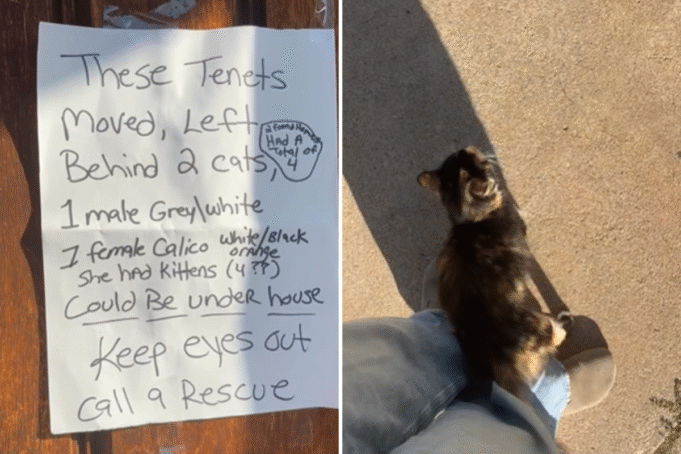 These Tenets
Moved, Left
Behind 2 cats,
2 found Homes
HAD A
Total of
4
1 male Grey/white
1 female Calico white/Black
orange
She had kittens (4??)
Could Be under house
Keep eyes out
call a Rescue